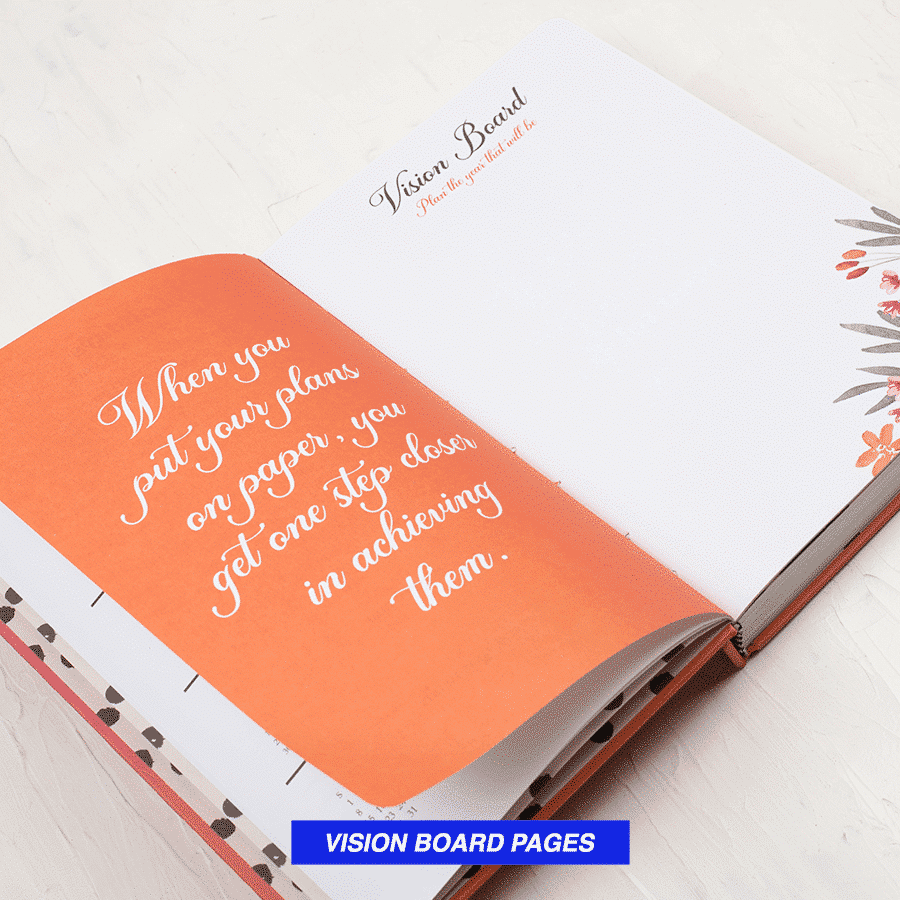 When you
put your plans
on paper, you
get one step closer
in achieving
them.
Vision Board
Plan the year that will be
VISION BOARD PAGES